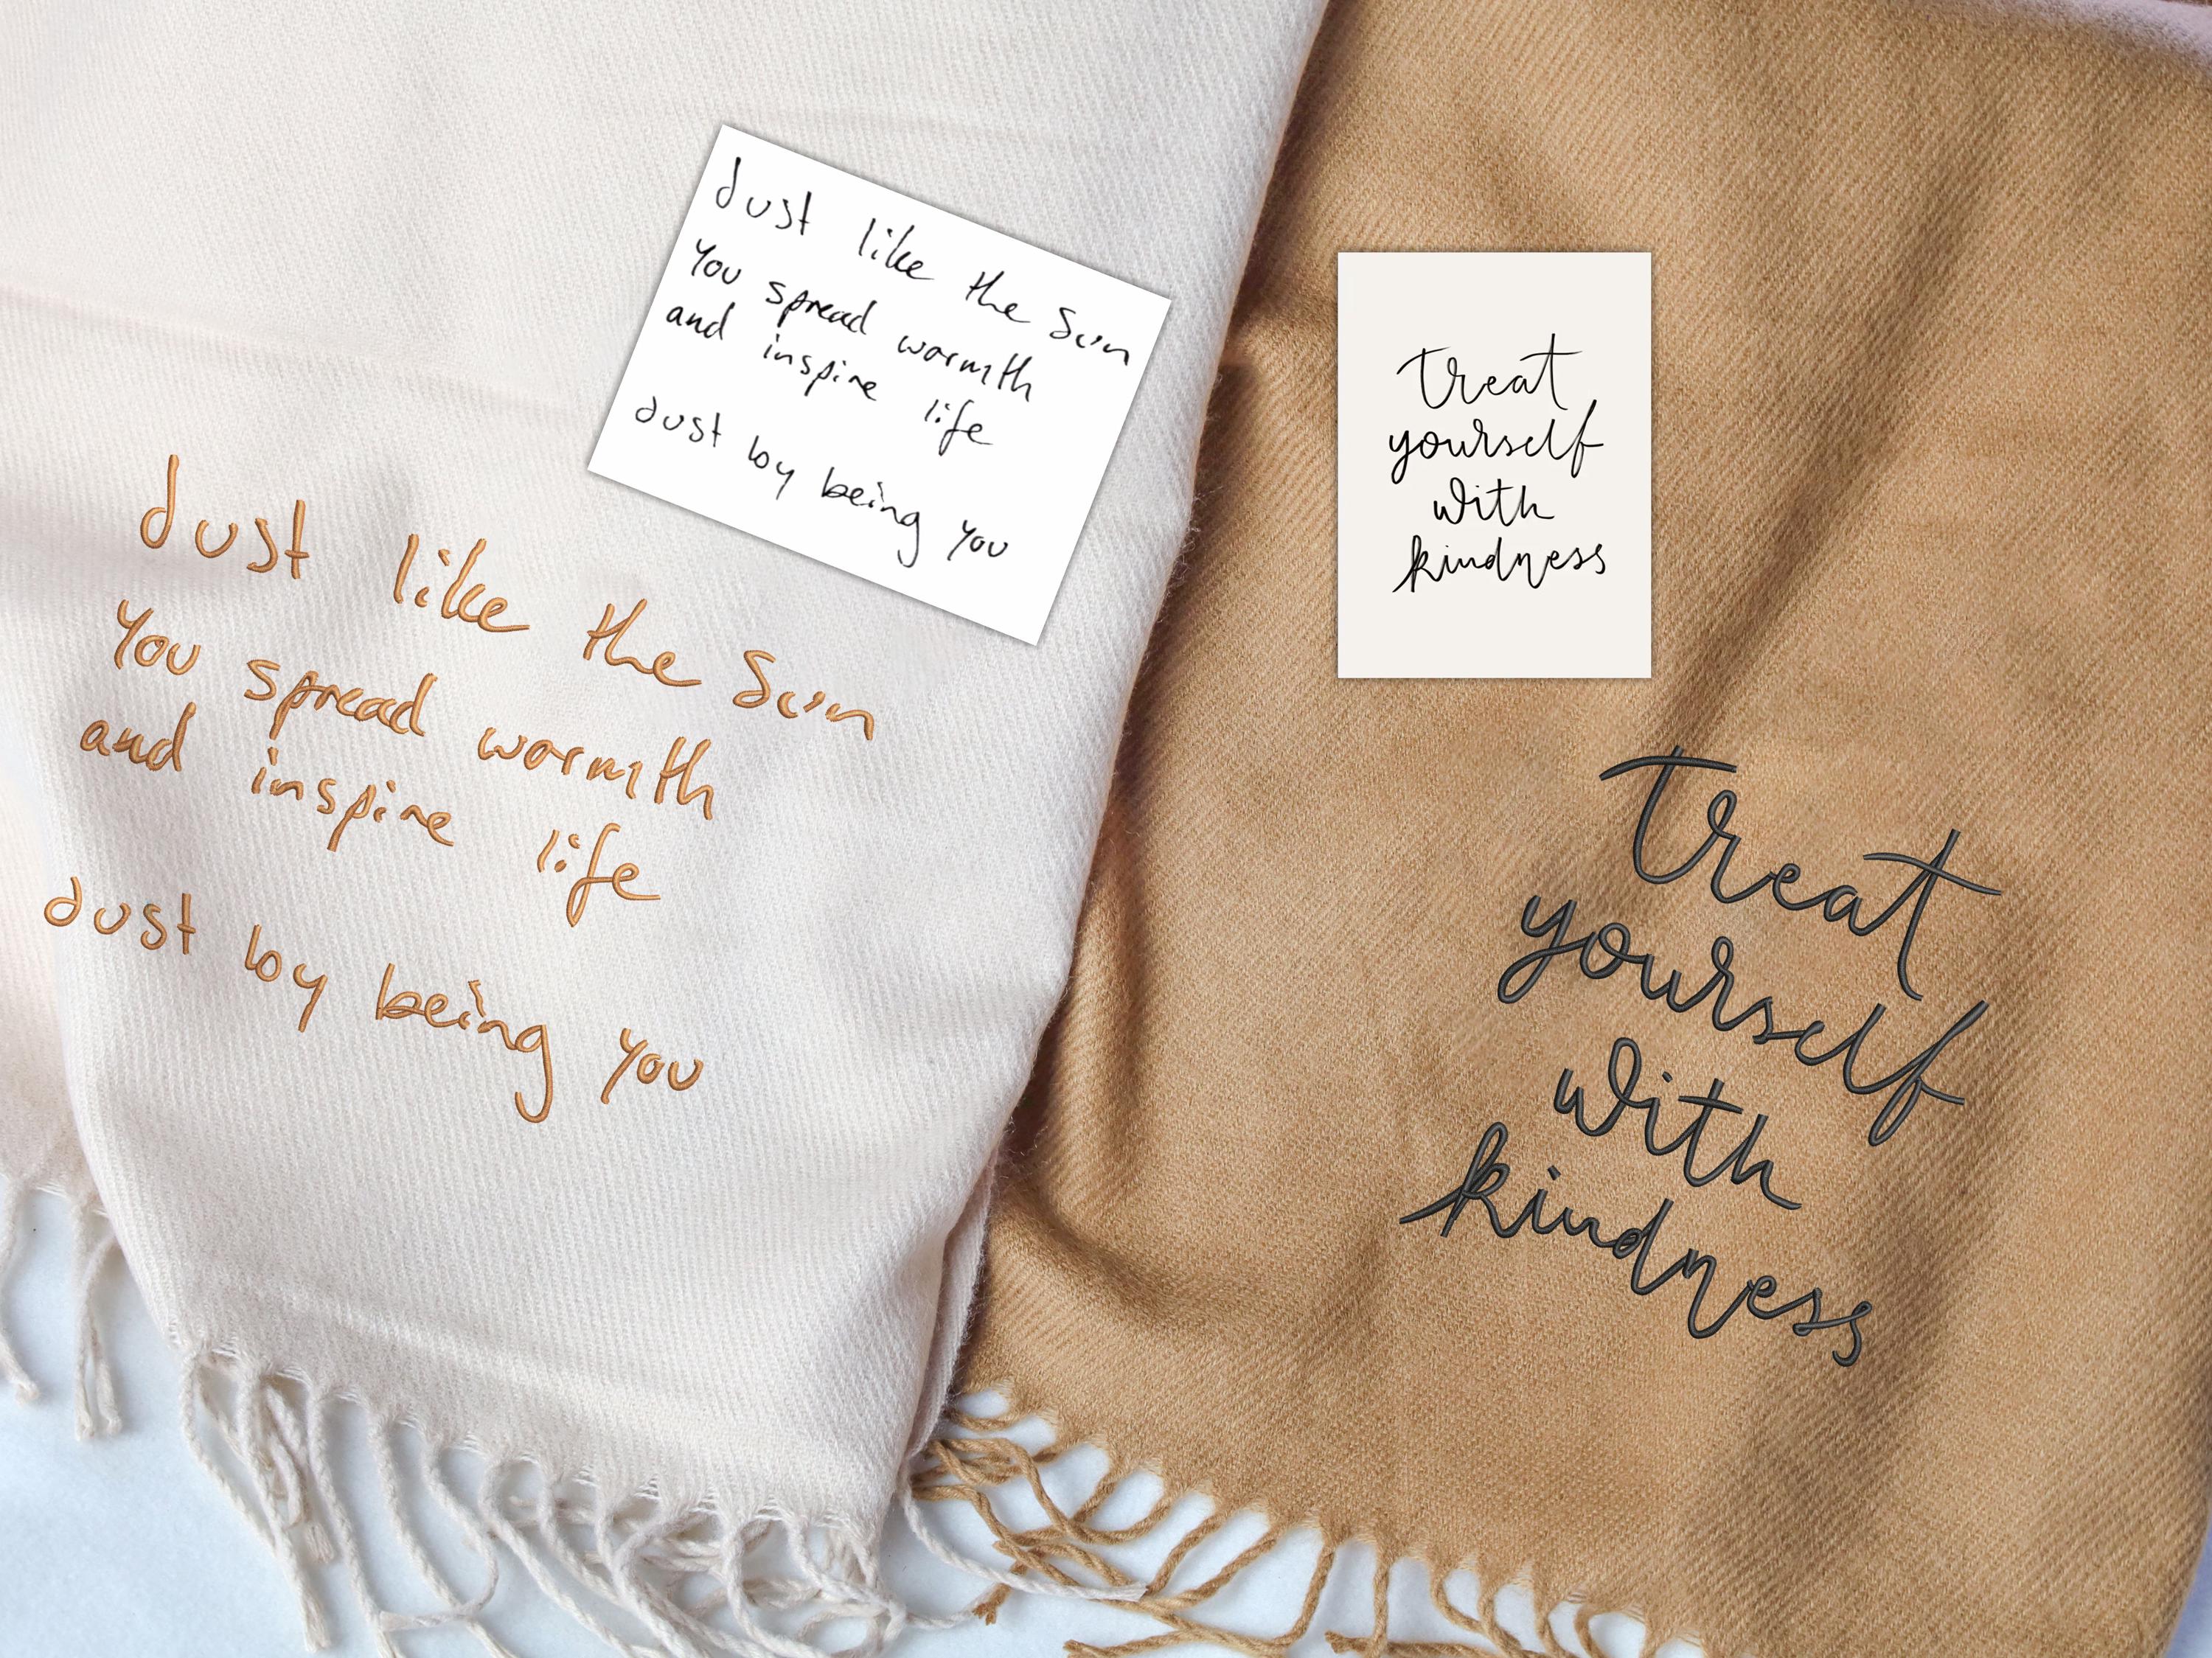 Just like the Sun
You spread warmth
and inspire life
Just by being you
treat
yourself
with
kindness
Just like the Sun
You spread warmth
and inspire life
Just by being you
treat
yourself
with
kindness